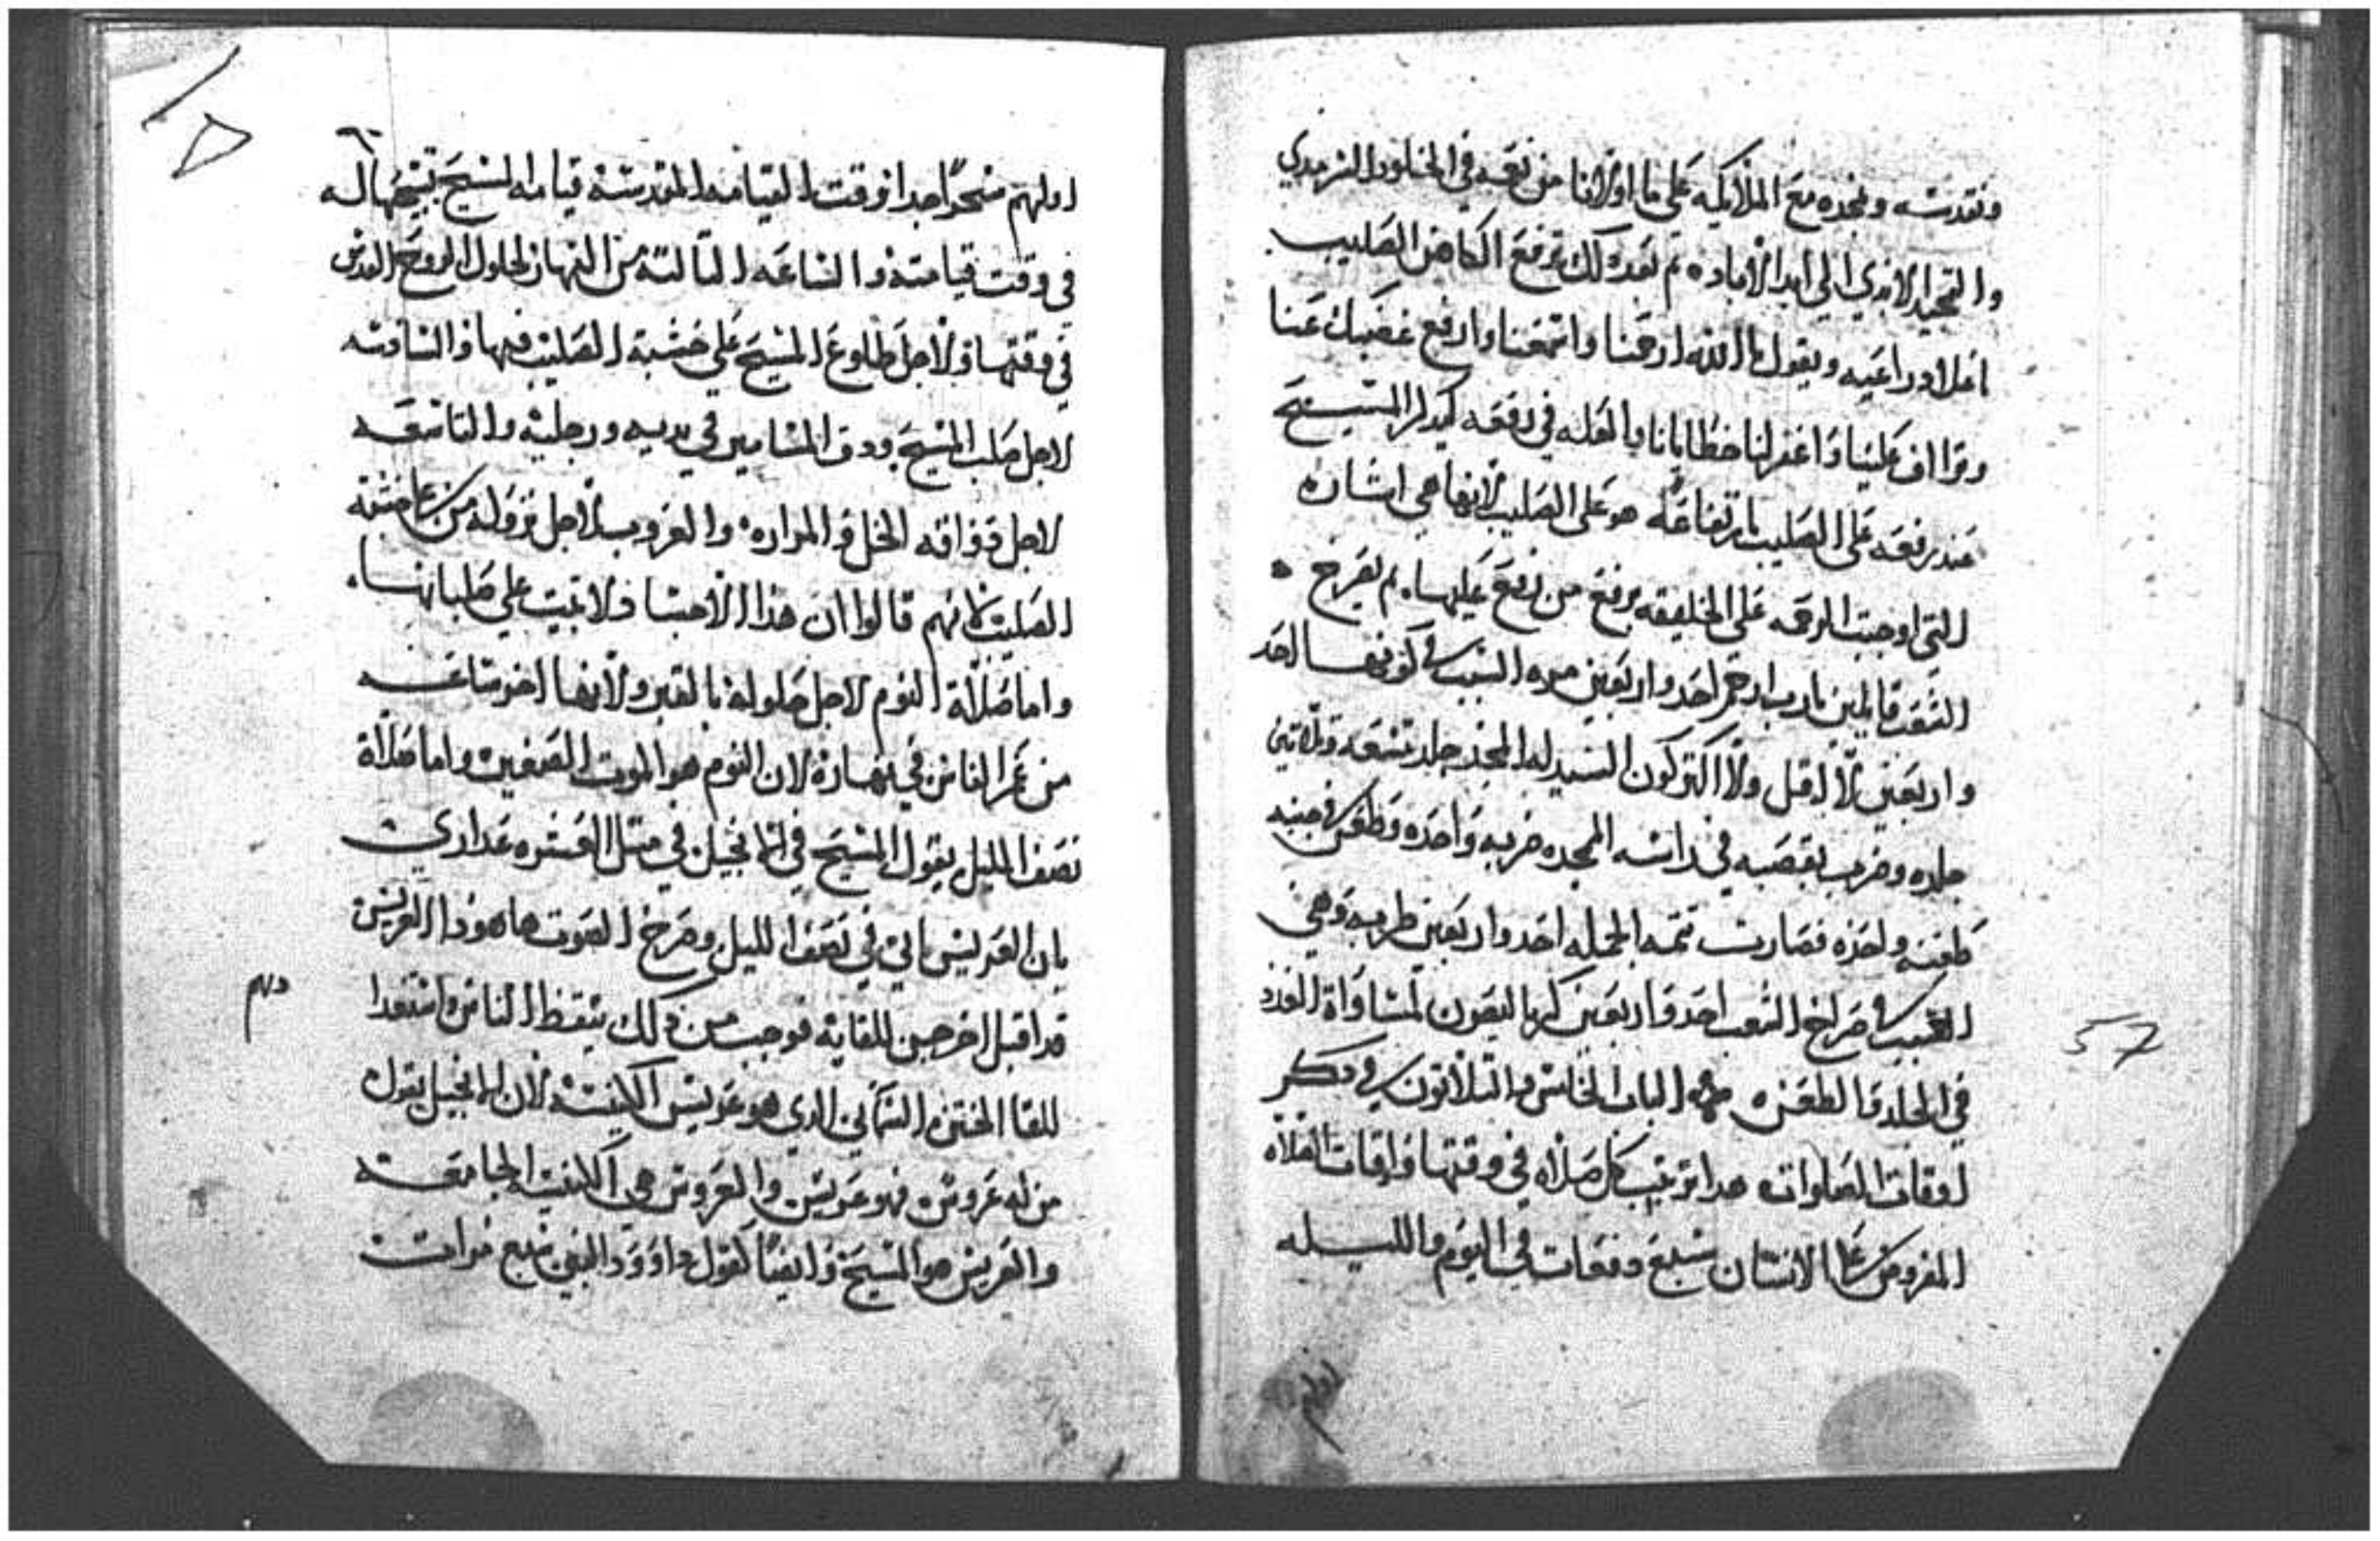 ونقدسه ونمجده مع الملايكه علي ما اورثنا من نعمه في الخلود السرمدي
والتمجيد الابدي الي ابد الاباد ثم بعد ذلك يرفع الكاهن الصليب
ويقول يا الله ارحمنا واسمعنا وارفع غضبك عنا
وتراف علينا واغفر لنا خطايانا والعله في رفعه كيدلر المسيح
عند رفعه علي الصليب بارتفاعه هو علي الصليب لانها هي اشاره
التي اوجبت الرحمه علي الخليقه برفع من رفع عليها ثم يصرخ
الشعب قايلين يارب ارحم احد واربعين مره السبب في كونها احد
واربعين لا اقل ولا اكتر كون السيد له المجد جلد تسعه وتلاتين
جلده وضرب بقصبه في راسه الممجده ضربه واحده وطعن في جنبه
طعنه واحده فصارت تتمه الجمله احد واربعين ضربه وهي
السبب في صراخ الشعب احد واربعين كيرياليصون لمساواة العدد
في الجلد والطعن الباب الخامس والتلاتون في دكر
اوقات الصلوات هدا ترتيب كل صلاه في وقتها واوقات الصلاه
المفروض علي الانسان سبع دفعات في اليوم والليله
اولهم
57
اولهم سحرا جدا وقت القيامه المقدسه قيامه المسيح تسبيحها له
في وقت قيامته والساعه التالته من النهار لحلول الروح القدس
في وقتها ولاجل طلوع المسيح علي خشبة الصليب فيها والسادسه
لاجل صلب المسيح ودق المسامير في يديه ورجليه والتاسعه
لاجل دواقه الخل والمراره والغروب لاجل نزوله من علي خشبة
الصليب لانهم قالوا ان هذا الاجسا فلا تبيت علي صلبانها
واما صلاة النوم لاجل حلوله بالقبر ولانها اخر ساعه
من عمر الناس في نهاره لان النوم هو الموت الصغير واما صلاة
نصف الليل يقول المسيح في الانجيل في متل العشره عداري
بان العريس ياتي في نصف الليل وصرخ الصوت هاهودا العريس
قد اقبل اخرجين للقايه فوجب من دلك يتيقظ الناس واستعدا
للقا الختن السمايي الدي هو عريس الكنيسه لان الانجيل يقول
من له عروس فهو عريس والعروس هي الكنيسه الجامعه
والعريس هو المسيح وايضا كقول داوود النبي سبع مرات